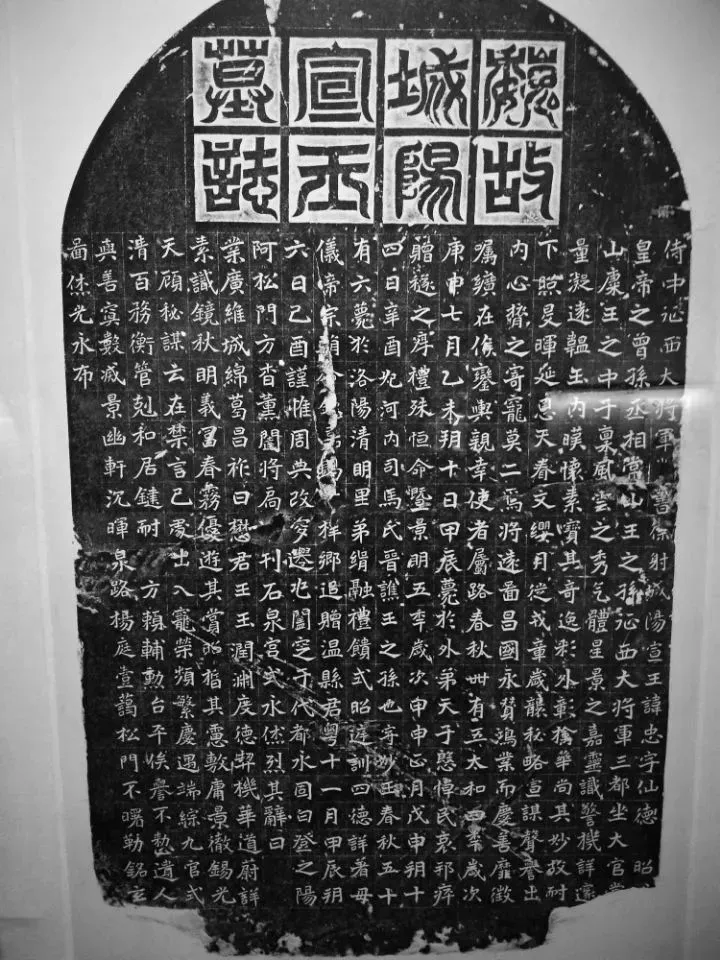 魏故
城陽
宣王
墓誌
侍中征西大將軍書僕射城陽宣王諱忠字仙德 昭
皇帝之曾孫丞相常山王之孫征西大將軍三都坐大官常
山康王之中子稟風雲之秀氣體星景之嘉靈識警機詳遠
量凝遠韞玉內暎懷素寶其奇逸彩外彰擒華尚其妙故耐
下照旻暉延恩天眷文纓月從戎章歲襲秘略宣謀聲譽出
內心膂之寄寵莫二焉將遠啚昌國永贊鴻業而慶善靡徵
嘱纊在侯鑾輿親幸使者屬路春秋卌有五太和四年歲次
庚申七月乙未玥十日甲辰薨於外弟天子愍悼民哀邦瘁
贈襚之厚禮殊恒命暨景明五年歲次申申正月戊申玥十
四日辛酉妃河內司馬氏晉譙王之孫也字妙玉春秋五十
有六薨於洛陽清明里弟緝融禮饋式昭遲訓四德詳著母
儀帝宗梓鄉追贈溫縣君粵十一月甲辰玥
六日己酉謹惟周典改穸遷兆闔窆于代都永固白登之陽
阿松門方杳薰闈將扃 刊石泉宫式永烋烈其辭曰
業廣維城綿葛昌祚曰懋君王玉潤淵度德契機華道蔚詳
素識鏡秋明義富春霧優遊其賞昭楷其憲敷庸景徹錫光
天顧秘謀云在禁言已處出入寵榮頻繁慶遇端綜九官式
清百務衡管剋和居鍵耐 方賴輔勳台平俟譽不憖遺人
與善寡數滅景幽軒沉暉泉路楊庭壹藹松門不曙勒銘玄
啚烋光永布